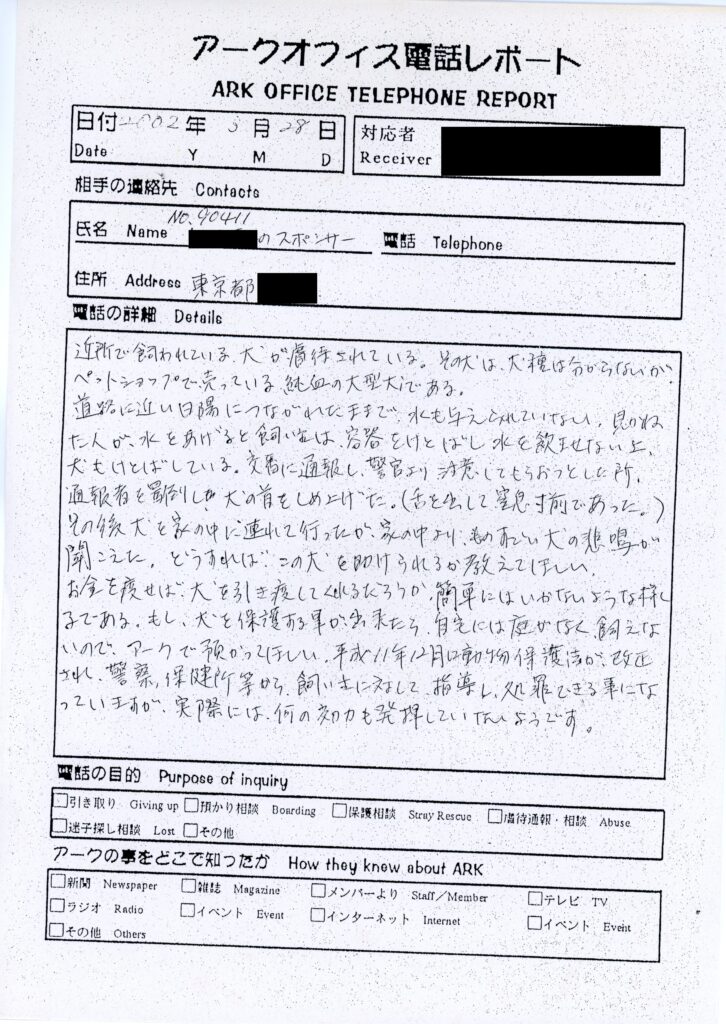 アークオフィス電話レポート
ARK OFFICE TELEPHONE REPORT
日付 2002 年 3 月 28 日
Date Y M D
対応者
Receiver
相手の連絡先 Contacts
NO.90411
氏名 Name のスポンサー 電話 Telephone
住所 Address 東京都
電話の詳細 Details
近所で飼われている、犬が虐待されている。その犬は、犬種は分からないが
ペットショップで売っている純血の大型犬である。
道路に近い日陽につながれたままで、水も与えられていない。見かね
た人が、水をあげると飼い主は、容器をけとばし水を飲ませない上、
犬もけとばしている。交番に通報し、警官より注意してもらおうとした所、
通報者を罵倒し 犬の首をしめ上げた。(舌を出して窒息寸前であった。)
その後犬を家の中に連れて行ったが、家の中より、ものすごい犬の悲鳴が
聞こえた。どうすれば、この犬を助けられるか教えてほしい。
お金を渡せば、犬を引き渡してくれるだろうか、簡単にはいかないような様
である。もし、犬を保護する事が出来たら、自宅には庭がなく飼えな
いので、アークで預かってほしい。平成11年12月に動物保護法が、改正
され、警察、保健所等から、飼い主に対して、指導し、処罪できる事にな
っていますが、実際には、何の効力も発揮していないようです。
電話の目的 Purpose of inquiry
引き取り Giving up 預かり相談 Boarding 保護相談 Stray Rescue 虐待通報・相談 Abuse
迷子探し相談 Lost その他
アークの事をどこで知ったか How they knew about ARK
新聞 Newspaper 雑誌 Magazine メンバーより Staff/Member テレビ TV
ラジオ Radio イベント Event インターネット Internet イベント Event
その他 Others